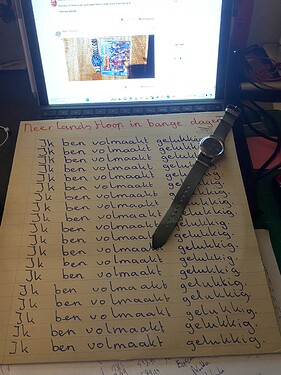 Neerlands Hoop in bange dagen
Ik ben volmaakt gelukkig.
Ik ben volmaakt gelukkig.
Ik ben volmaakt gelukkig.
Ik ben volmaakt gelukkig.
Ik ben volmaakt gelukkig.
Ik ben volmaakt gelukkig.
Ik ben volmaakt gelukkig.
Ik ben volmaakt gelukkig.
Ik ben volmaakt gelukkig.
Ik ben volmaakt gelukkig.
Ik ben volmaakt gelukkig.
Ik ben volmaakt gelukkig.
Ik ben volmaakt gelukkig.
Ik ben volmaakt gelukkig.
Ik ben volmaakt gelukkig.
Ik ben volmaakt gelukkig.
Ik ben volmaakt gelukkig.
Ik ben volmaakt gelukkig.
Ik ben volmaakt gelukkig.